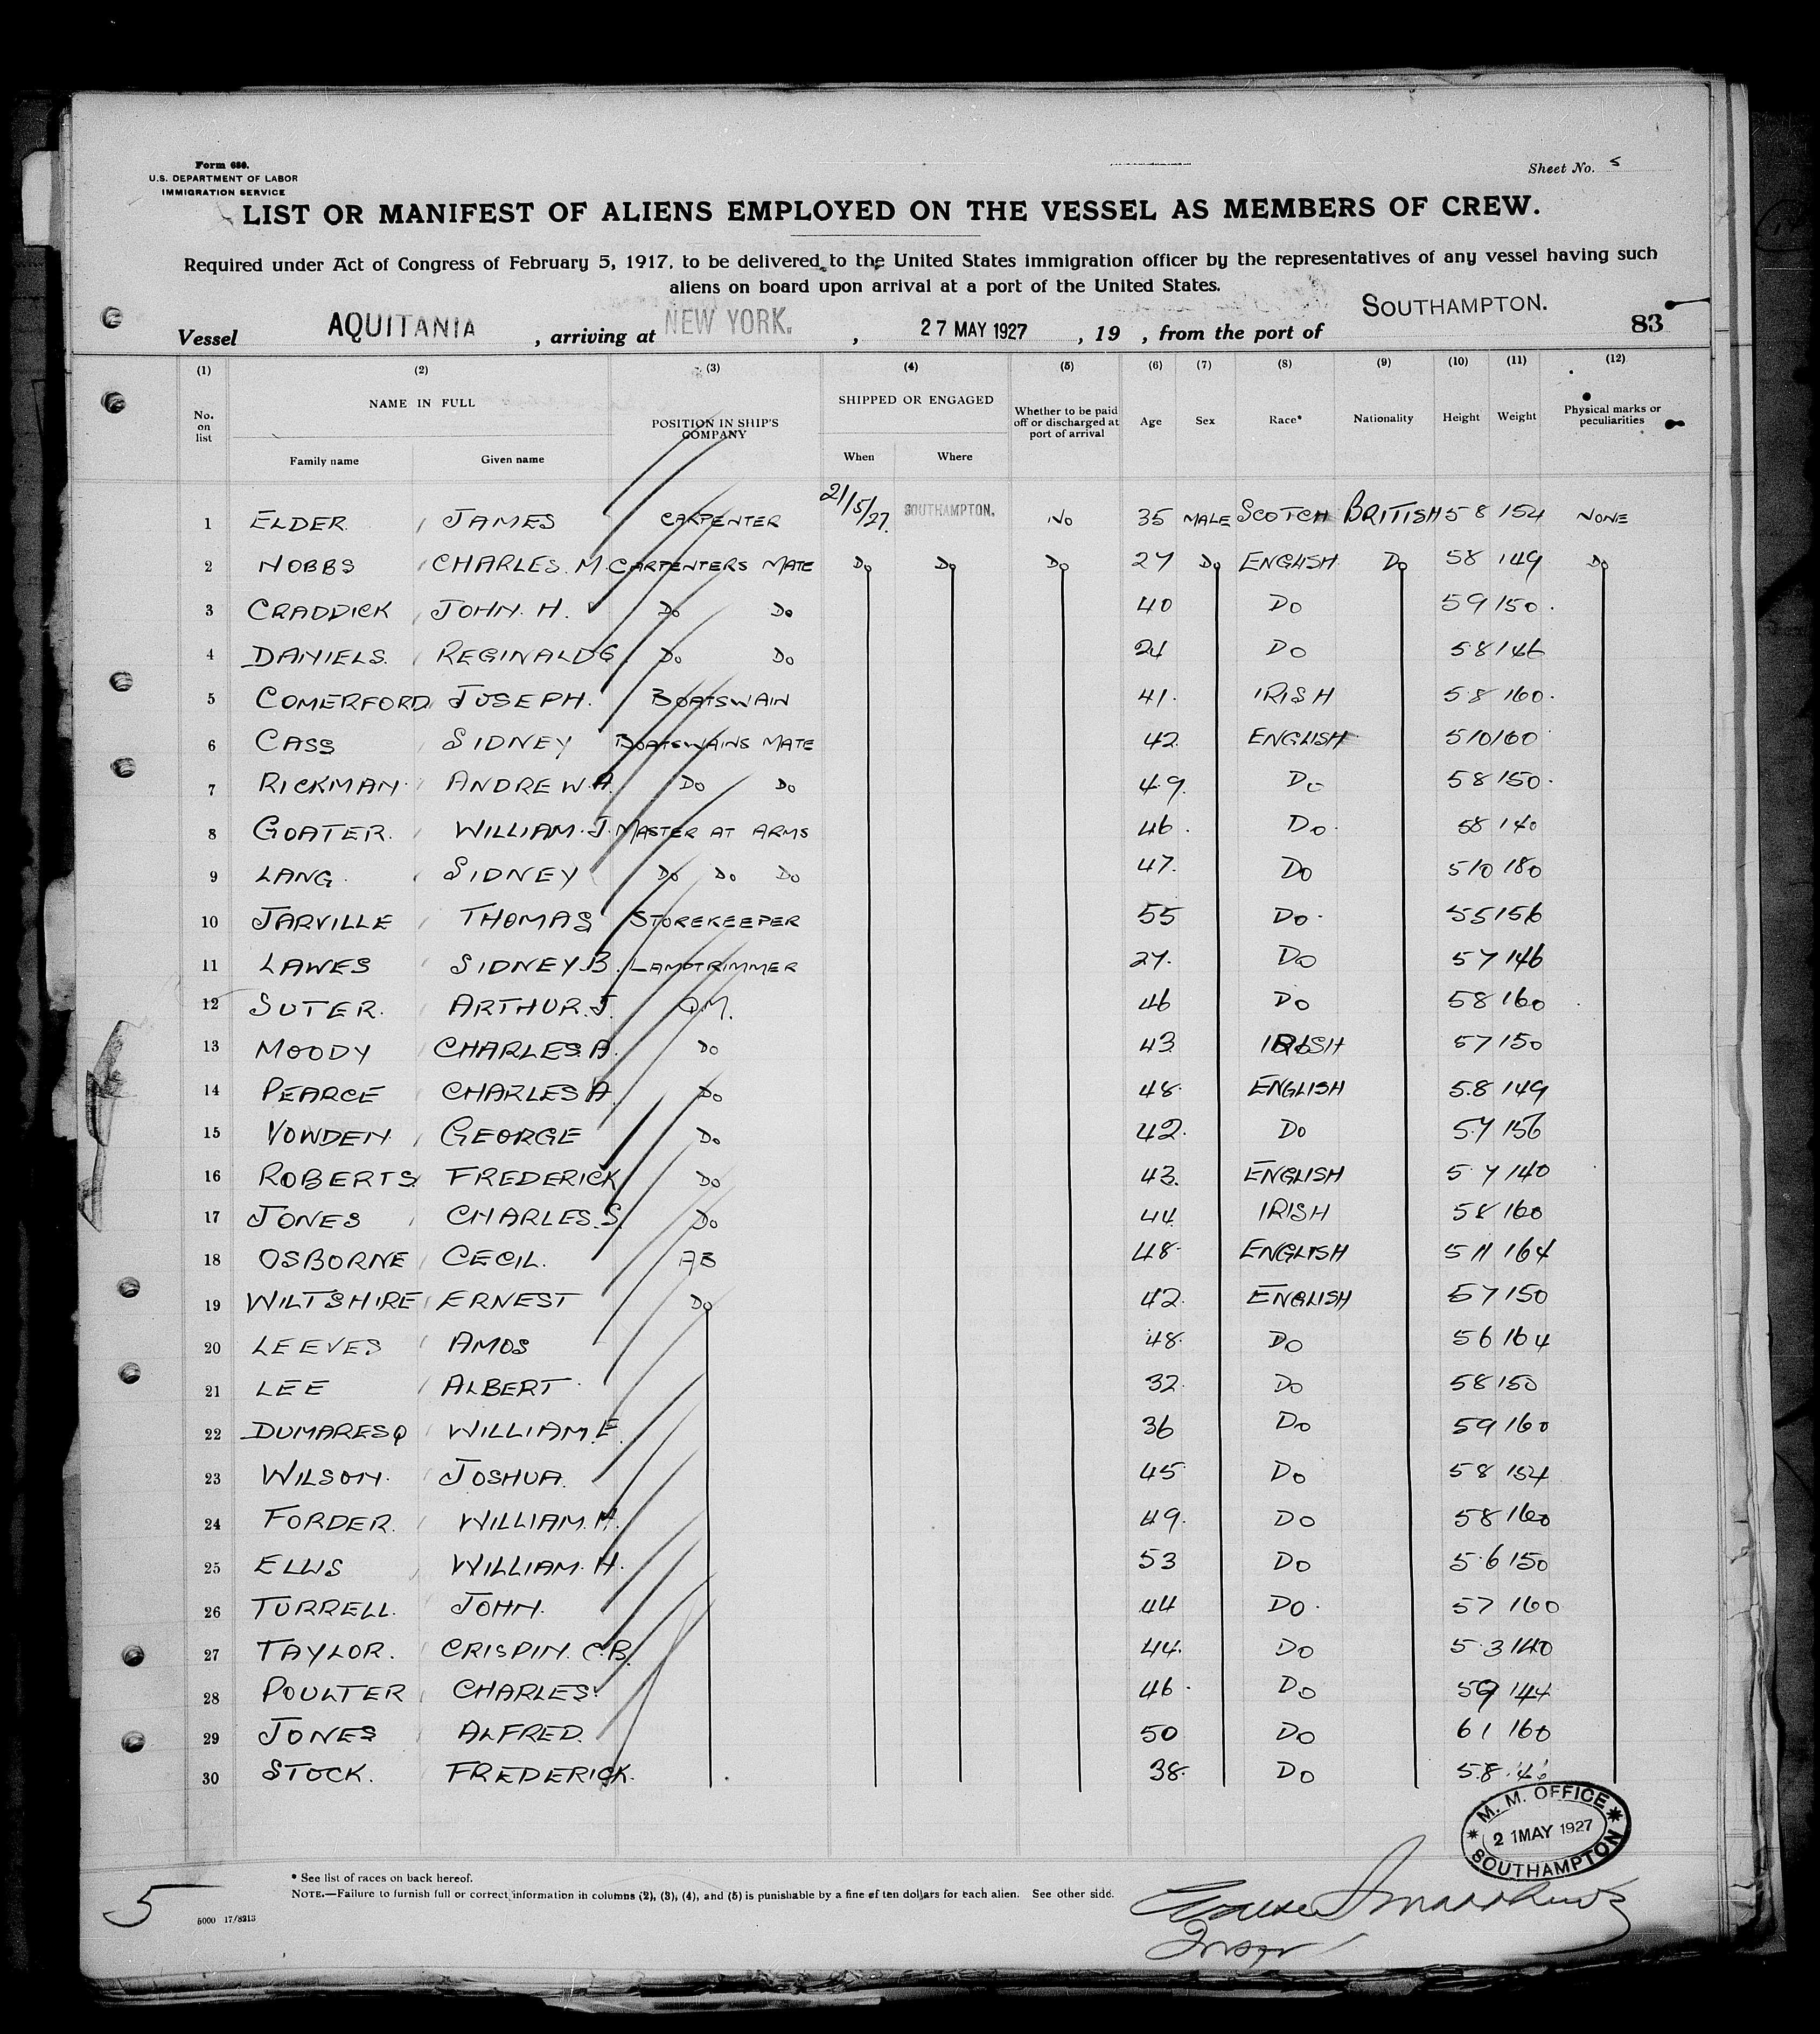 Form 680.
U.S. DEPARTMENT OF LABOR
IMMIGRATION SERVICE
Sheet No. 5
LIST OR MANIFEST OF ALIENS EMPLOYED ON THE VESSEL AS MEMBERS OF CREW.
Required under Act of Congress of February 5, 1917, to be delivered to the United States immigration officer by the representatives of any vessel having such
aliens on board upon arrival at a port of the United States.
Vessel AQUITANIA , arriving at NEW YORK. , 27 MAY 1927 , 19 , from the port of SOUTHAMPTON. 83
(1) (2) (3) (4) (5) (6) (7) (8) (9) (10) (11) (12)
No. on list NAME IN FULL Family name Given name POSITION IN SHIP'S COMPANY SHIPPED OR ENGAGED When Where Whether to be paid off or discharged at port of arrival Age Sex Race* Nationality Height Weight Physical marks or peculiarities
1 ELDER. JAMES CARPENTER 21/5/27. SOUTHAMPTON. NO 35 MALE SCOTCH BRITISH 58 154 NONE
2 NOBBS CHARLES. M. CARPENTERS MATE DO DO DO 27 DO ENGLISH DO 58 149 DO
3 CRADDICK JOHN. H. DO DO 40 DO 59 150.
4 DANIELS. REGINALD G. DO DO 24 DO 58 146
5 COMERFORD JOSEPH. BOATSWAIN 41. IRISH 58 160.
6 CASS SIDNEY BOATSWAINS MATE 42 ENGLISH 510 160
7 RICKMAN ANDREW. A. DO DO 49. DO 58 150.
8 GOATER. WILLIAM. J. MASTER AT ARMS 46. DO. 58 140
9 LANG. SIDNEY DO DO DO 47. DO 510 180
10 JARVILLE THOMAS STOREKEEPER 55 DO. 55 156
11 LAWES SIDNEY B. LAMPTRIMMER 27. DO 57 146
12 SUTER. ARTHUR. J. QM. 46 DO 58 160
13 MOODY CHARLES. A. DO 43 IRISH 57 150
14 PEARCE CHARLES A. DO 48. ENGLISH 5.8 149
15 VOWDEN GEORGE DO 42. DO 57 156
16 ROBERTS. FREDERICK DO 43. ENGLISH 57 140
17 JONES CHARLES. S. DO 44 IRISH 58 160
18 OSBORNE CECIL. AB 48. ENGLISH 511 164
19 WILTSHIRE ERNEST DO 42. ENGLISH 57 150
20 LEEVES AMOS 48. DO 56 164
21 LEE ALBERT 32. DO 58 150
22 DUMARESQ WILLIAM. E. 36 DO 59 160
23 WILSON. JOSHUA. 45 DO 58 154
24 FORDER. WILLIAM. H. 49. DO 58 160
25 ELLIS WILLIAM. H. 53 DO 5.6 150
26 TURRELL. JOHN. 44 DO. 57 160
27 TAYLOR. CRISPIN. C.B. 44. DO 5.3 140
28 POULTER CHARLES. 46. DO 59 144
29 JONES ALFRED. 50 DO 61 160
30 STOCK. FREDERICK. 38. DO 5.8
M. M. OFFICE
21 MAY 1927
SOUTHAMPTON
* See list of races on back hereof.
NOTE.—Failure to furnish full or correct information in columns (2), (3), (4), and (5) is punishable by a fine of ten dollars for each alien. See other side.
5
5000 17/8213